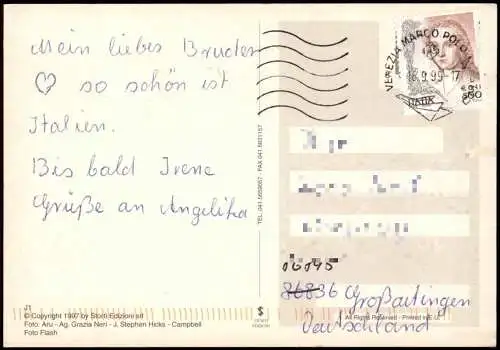 Mein liebes Bruder
♡ so schön ist
Italien.
Bis bald Irene
Grüße an Angelika
VENEZIA MARCO POLO
.9.99-17
TEL. 041.5659057 - FAX 041.5631157
06045
86836 Großaitingen
Deutschland
J1
© Copyright 1997 by Storti Edizioni srl
Foto: Aru - Ag. Grazia Neri - J. Stephen Hicks - Campbell
Foto Flash
All Rights Reserved - Printed in E.U.